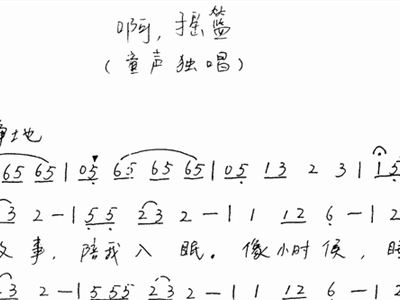 啊,摇篮
(童声独唱)
地
65 65 | 05 65 65 65 | 05 13 2 3 | 15
23 2 - | 55 23 2 - | 1 1 12 6 - | 12
事,陪我入眠。像小时候,
23 2 - | 55 23 2 - | 1 1 12 6 - | 1